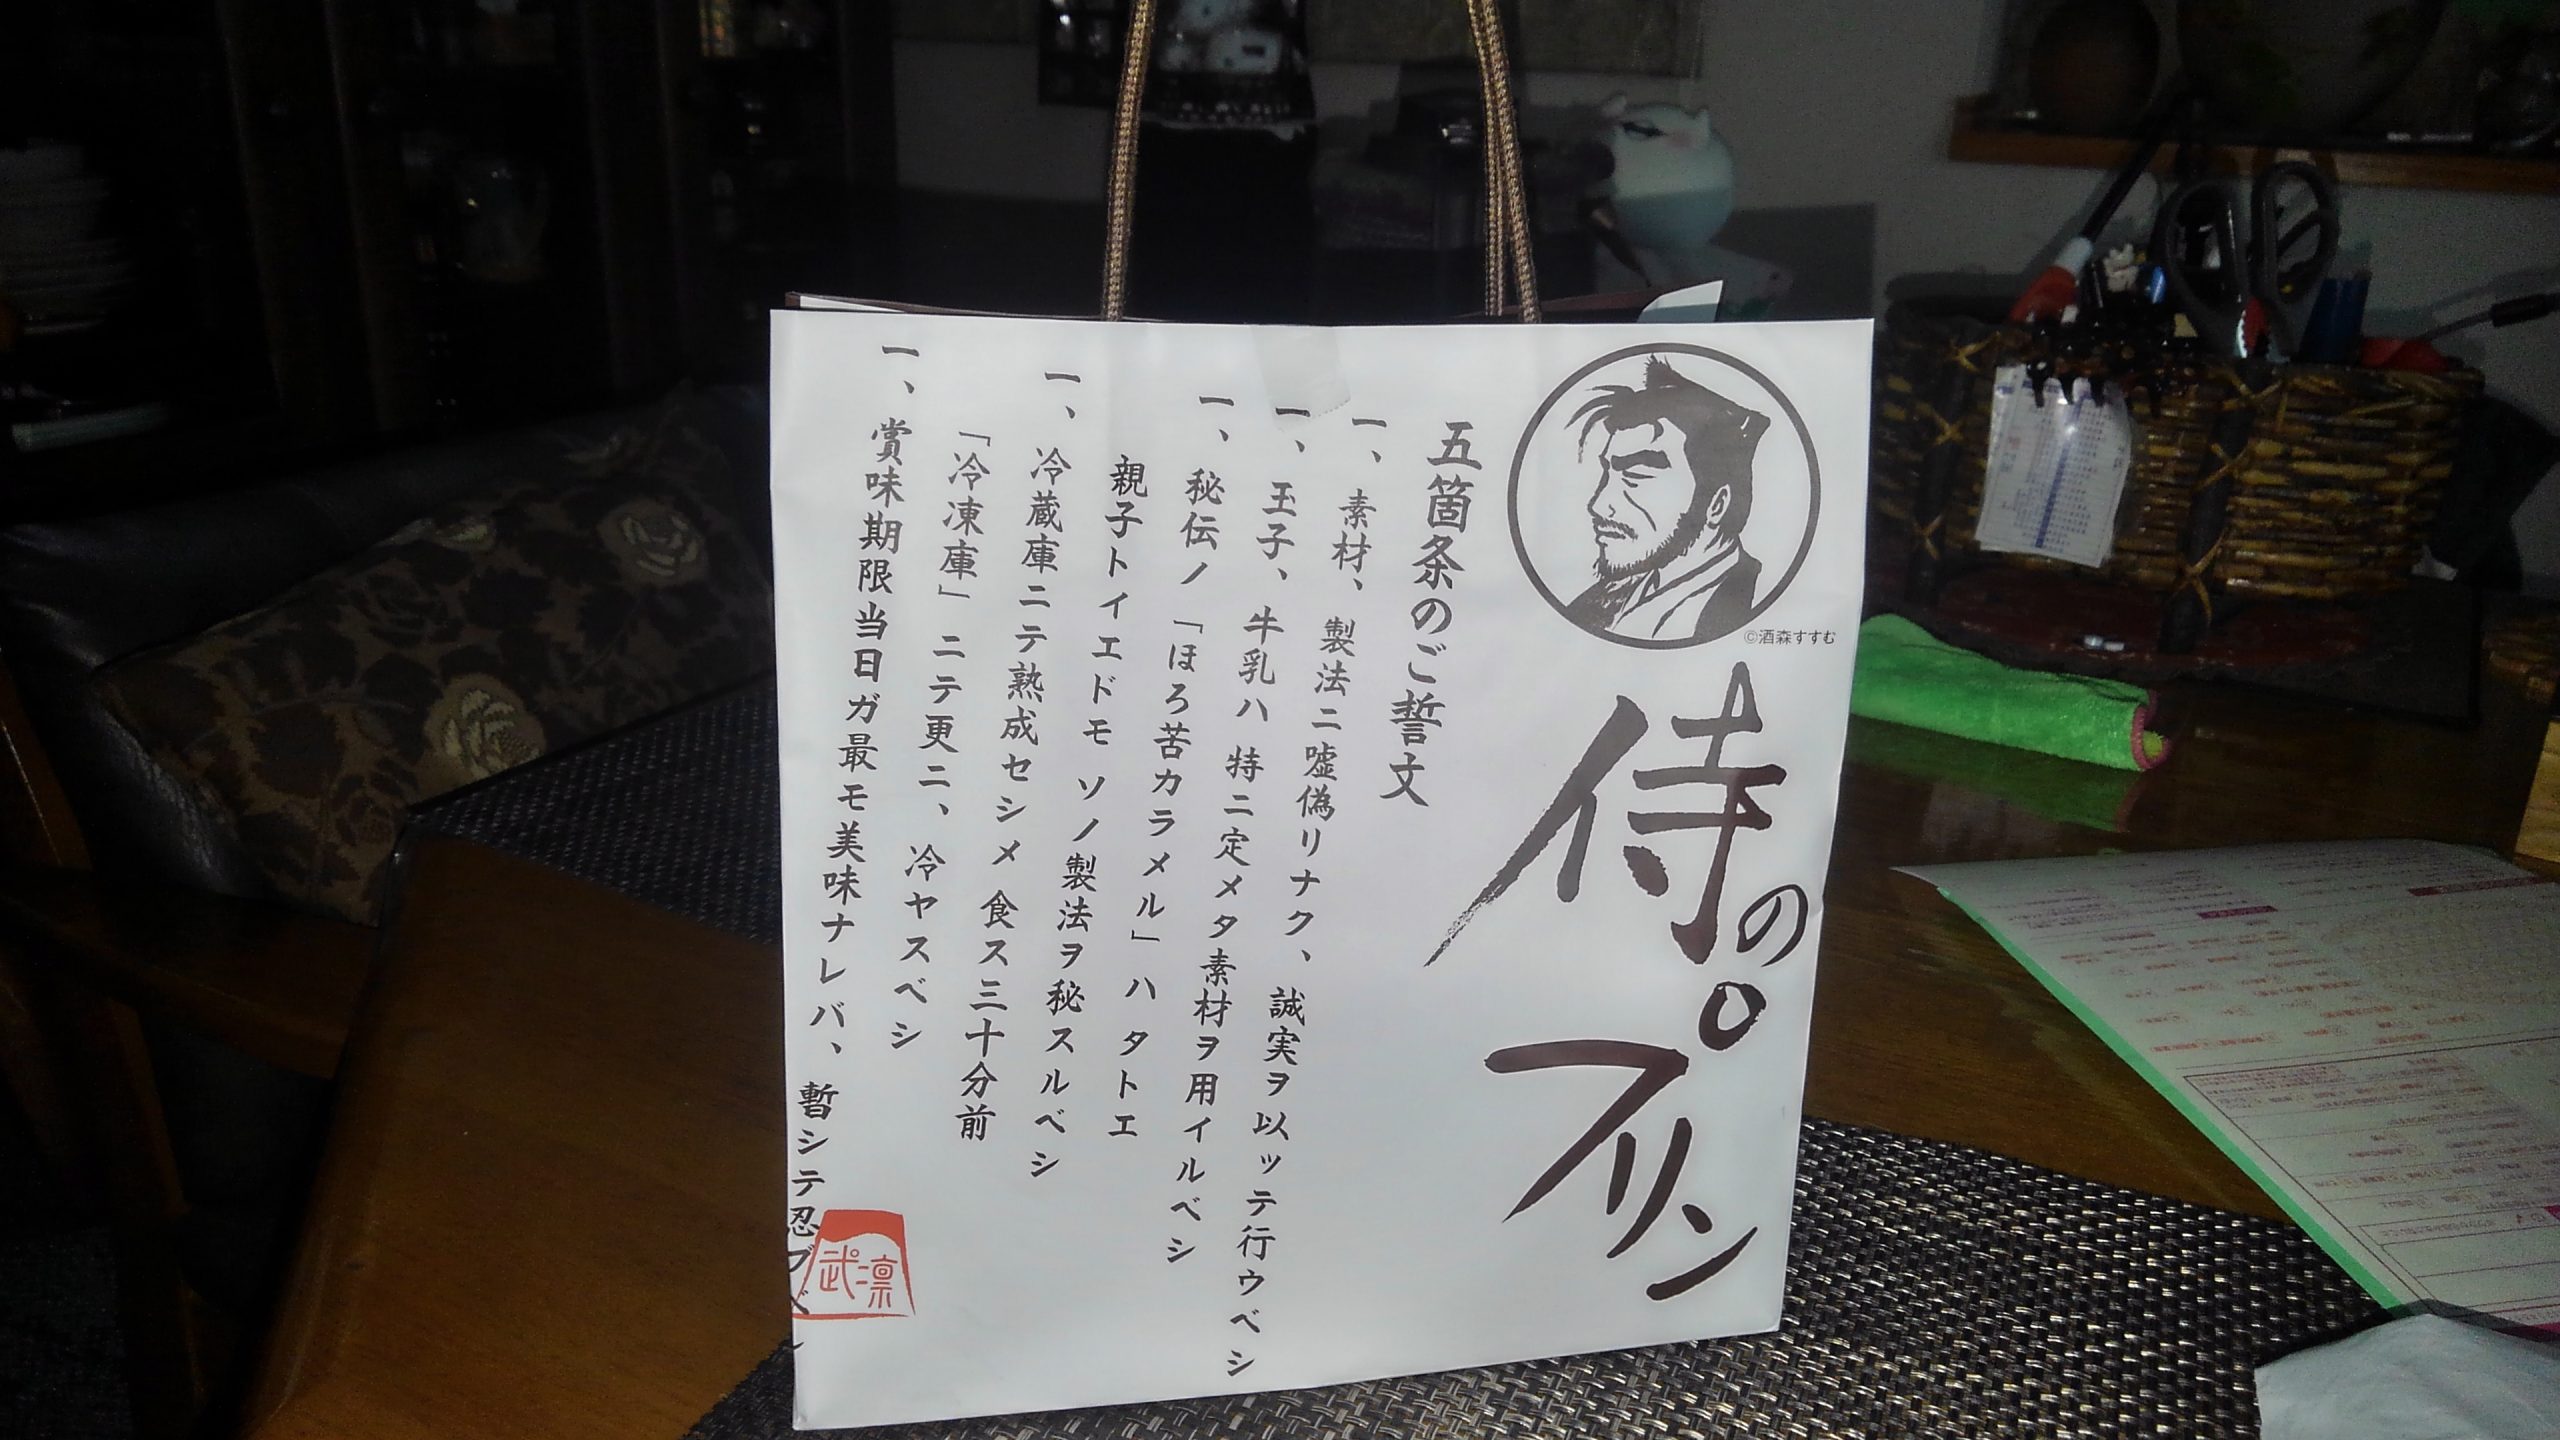 ©酒森すすむ
侍のプリン
五箇条のご誓文
一、素材、製法ニ嘘偽リナク、誠実ヲ以ッテ行ウベシ
一、玉子、牛乳ハ 特ニ定メタ素材ヲ用イルベシ
一、秘伝ノ「ほろ苦カラメル」ハ タトエ
親子トイエドモ ソノ製法ヲ秘スルベシ
一、冷蔵庫ニテ熟成セシメ 食ス三十分前
「冷凍庫」ニテ更ニ、冷ヤスベシ
一、賞味期限当日ガ最モ美味ナレバ、暫シテ忍ブベシ
武凛